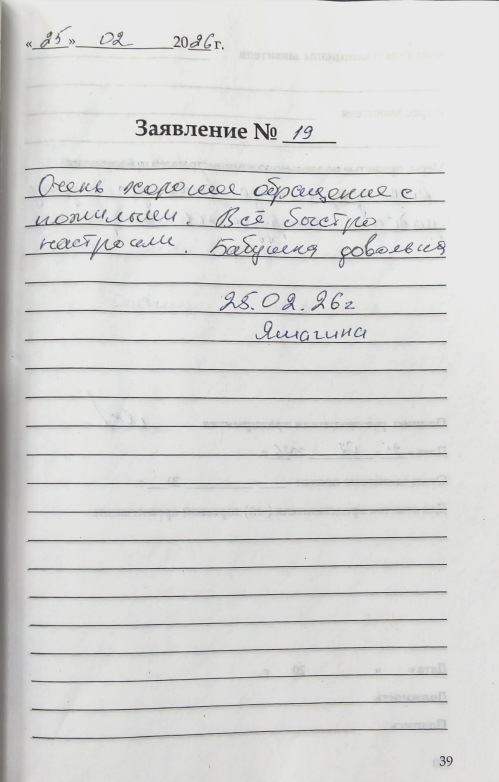 «25» 02 2026 г.
Заявление № 19
Очень хорошее обращение с
пожилыми. Всё быстро
настроили. Бабушка довольна
25.02.26 г
39